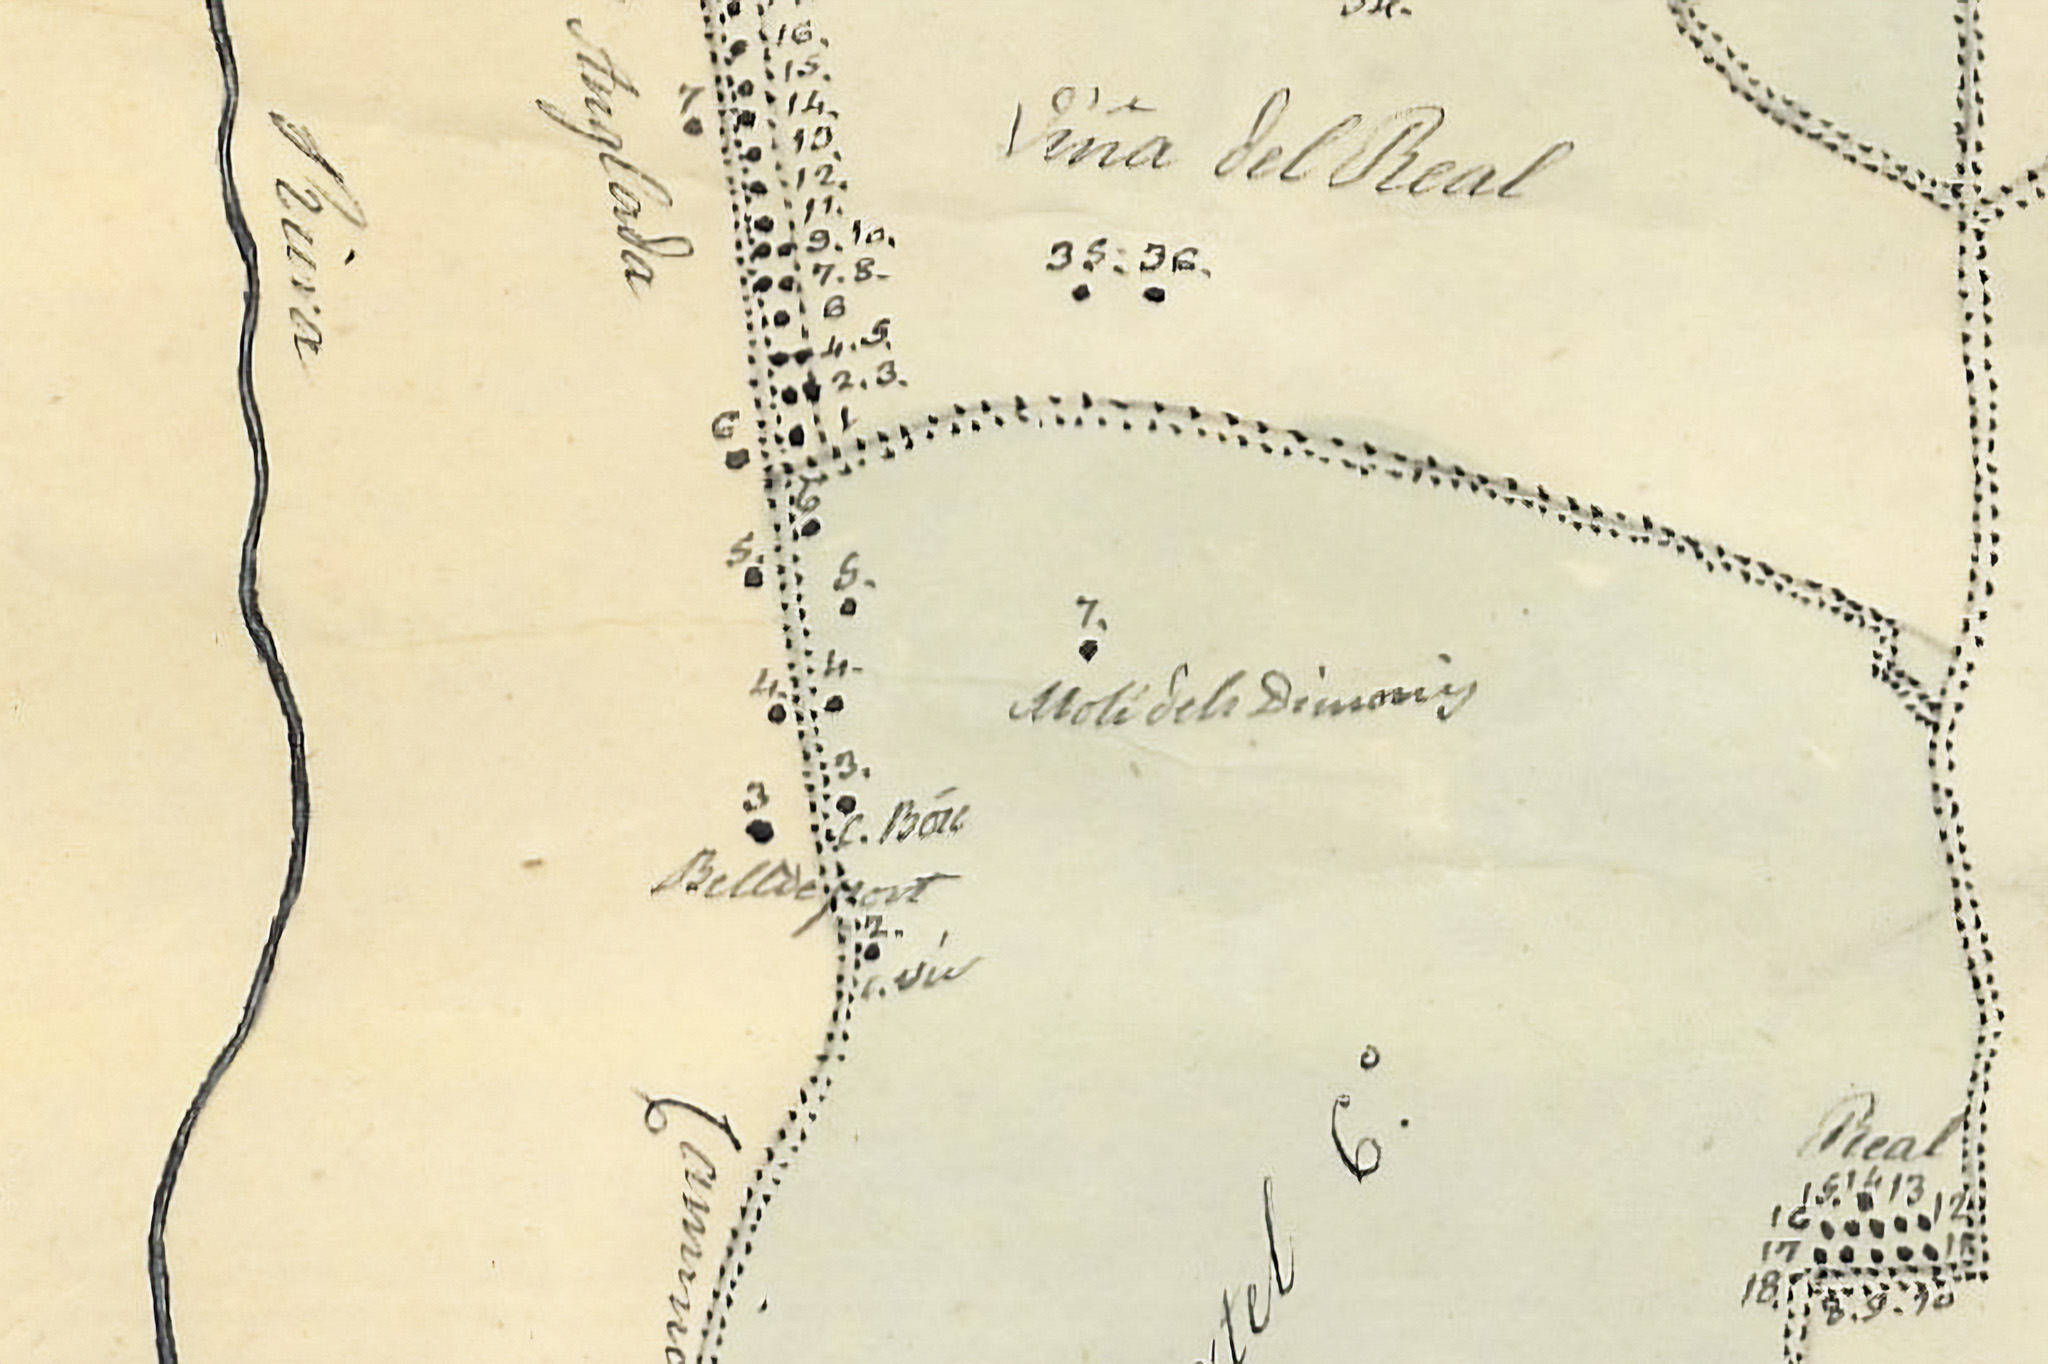 16.
15.
14.
13.
12.
11.
9. 10.
7. 8.
6
4. 5.
2. 3.
1
7
Anglada
Viña del Real
35. 36.
6
6
5.
5.
7.
Moli dels Dimonis
4.
4.
3.
3
c. Bóu
Belldeport
2.
6.
Real
15. 14 13
16 12
17 11
18. 8. 9. 10
Camino